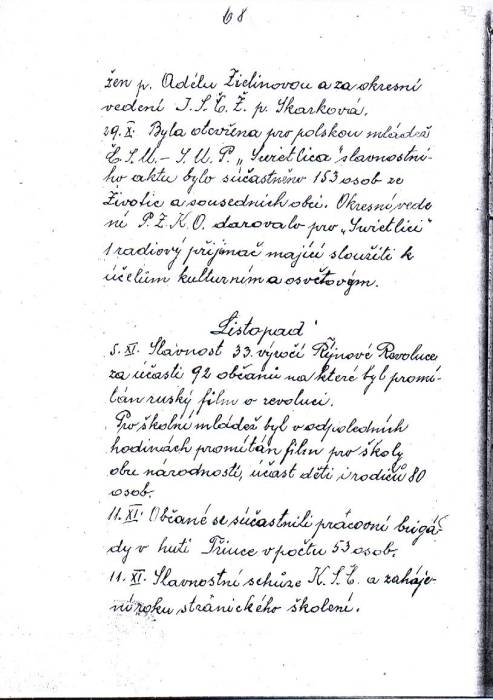 68
72
žen p. Adélu Zielinovou a za okresní
vedení I.S.Č.Ž. p. Skarková.
29.X. Byla otevřena pro polskou mládež
Č.S.M. – S.M.P. „Swietlica" slavnostní-
ho aktu bylo súčastněno 153 osob ze
Životic a sousedních obcí. Okresní vede
ní P.Z.K.O. darovalo pro „Swietlici"
1 radiový přijmač mající sloužiti k
účelům kulturním a osvětovým.
Listopad
5. XI. Slavnost 33. výročí Říjnové Revoluce
za účasti 92 občanů na které byl promí-
tán ruský film o revoluci.
Pro školní mládež byl v odpoledních
hodinách promítán film pro školy
obu národností, účast dětí i rodičů 80
osob.
11. XI. Občané se súčastnili prácovní brigá-
dy v huti Třinec v počtu 53 osob.
11. XI. Slavnostní schůze K.S.Č. a zaháje-
ní roku stránického školení.